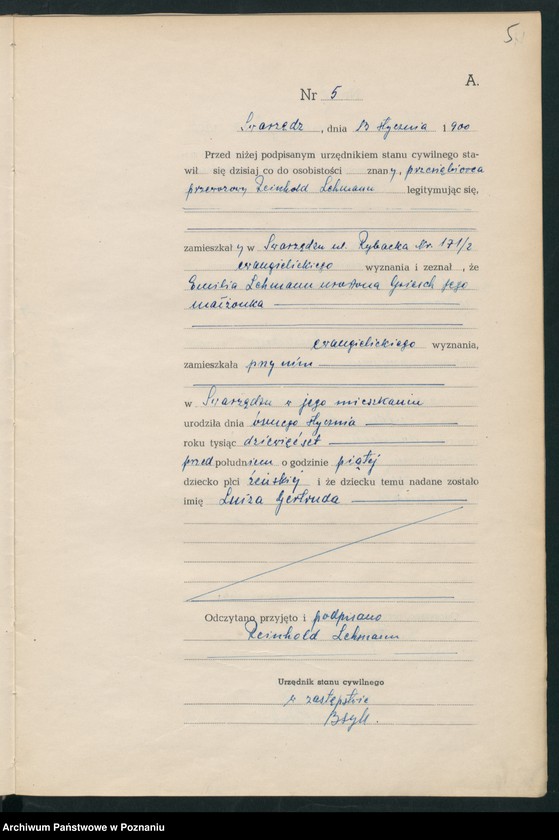 5
A.
Nr 5
Swarzędz, dnia 13 stycznia 1900
Przed niżej podpisanym urzędnikiem stanu cywilnego sta-
wił się dzisiaj co do osobistości znany, przesiębiorca
przewozowy Reinhold Lehmann legitymując się,
zamieszkały w Swarzędzu ul. Rybacka Nr. 171/2
ewangielickiego wyznania i zeznał, że
Emilia Lehmann urodzona Griesch jego
małżonka
ewangielickiego wyznania,
zamieszkała przy nim
w Swarzędzu w jego mieszkaniu
urodziła dnia ósmego stycznia
roku tysiąc dziewięćset
przed południem o godzinie piątej
dziecko płci żeńskiej i że dziecku temu nadane zostało
imię Luiza Gertruda
Odczytano przyjęto i podpisano
Reinhold Lehmann
Urzędnik stanu cywilnego
w zastępstwie
Archiwum Państwowe w Poznaniu